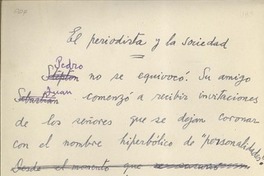 El periodista y la sociedad
Pedro
Stepton no se equivocó. Su amigo
Juan
Sebastián comenzó a recibir invitaciones
de los señores que se dejan coronar
con el nombre hiperbólico de "personalidades".
Desde el momento que